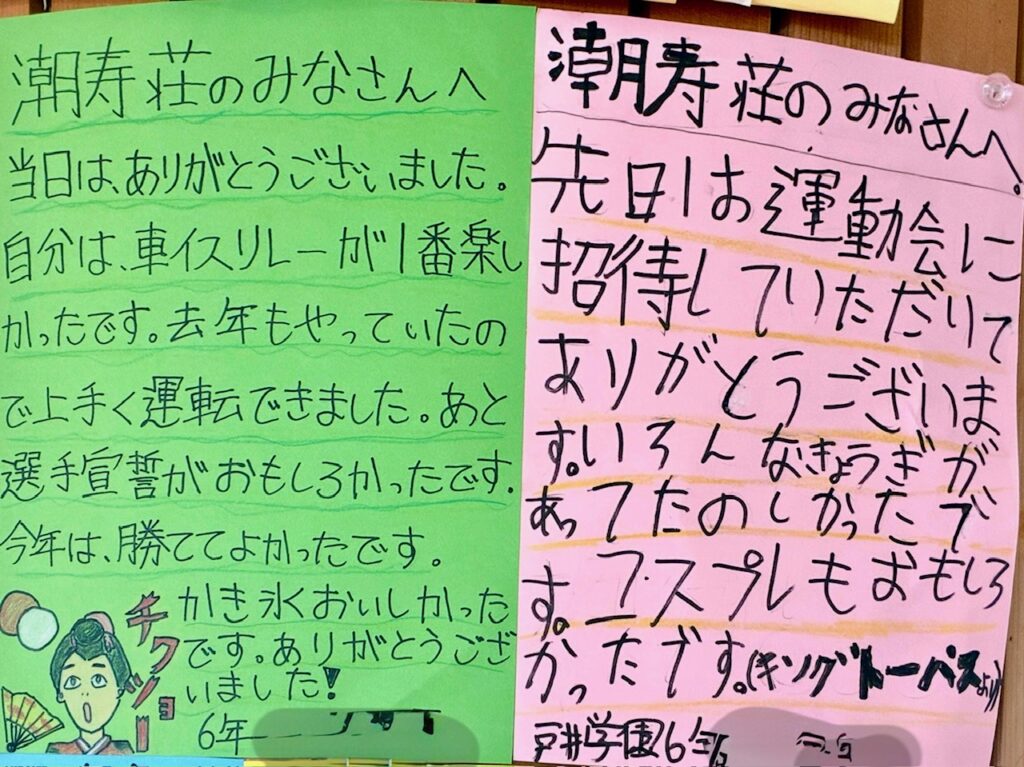 潮寿荘のみなさんへ
当日は、ありがとうございました。
自分は、車イスリレーが1番楽し
かったです。去年もやっていたの
で上手く運転できました。あと
選手宣誓がおもしろかったです。
今年は、勝ててよかったです。
かき氷おいしかった
です。ありがとうござ
いました!
6年
チクショー
潮寿荘のみなさんへ。
先日は運動会に
招待していただいて
ありがとうございま
す。いろんなきょうぎが
あってたのしかったで
す。コスプレもおもしろ
かったです。(キングトーバスより)
戸井学園6年